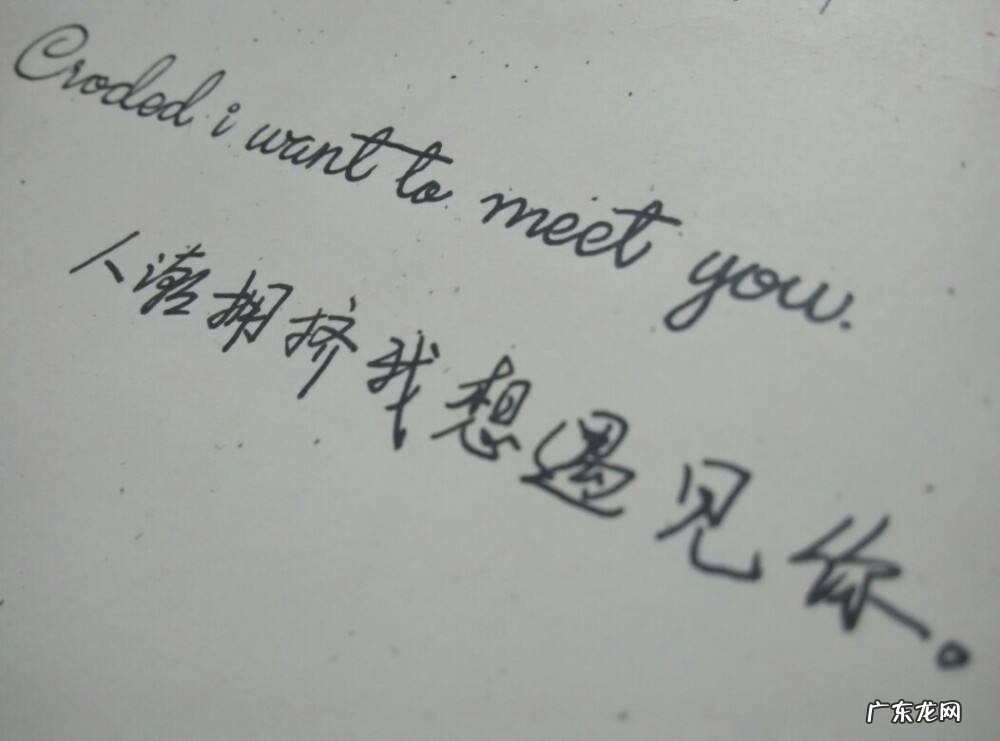 Croded i want to meet you.
人潮拥挤我想遇见你。
广东龙网